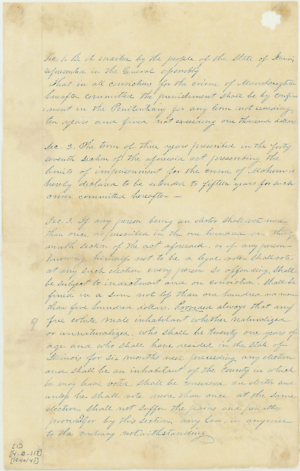 Sec. 1. Be it enacted by the people of the State of Illinois
represented in the General Assembly
That in all convictions for the crime of Manslaughter
hereafter committed the punishment shall be by confine
ment in the Penitentiary for any term not exceeding
ten years and fine not exceeding one thousand dollars
Sec. 2. The term of three years prescribed in the forty
seventh section of the aforesaid act prescribing the
limits of imprisonment for the crime of
hereby declared to be extended to fifteen years for such
crime committed hereafter —
Sec. 3 If any person being an elector shall vote more
than once as prescribed in the one hundred and thirty
ninth section of the act aforesaid or if any person
knowing himself not to be a legal voter shall vote
at any such election every person so offending shall
be subject to indictment and on conviction shall be
fined in a sum not less than one hundred nor more
than five hundred dollars. Provided always that any
free white male inhabitant whether naturalized
or unnaturalized, who shall be twenty one years of
age and who shall have resided in the State of
Illinois for six months next preceding any election
and shall be an inhabitant of the County in which
he may have voted shall be considered an elector and
unless he shall vote more than once at the same
election shall not suffer the pains and penalties
provided by this section any law in any wise
to the contrary notwithstanding